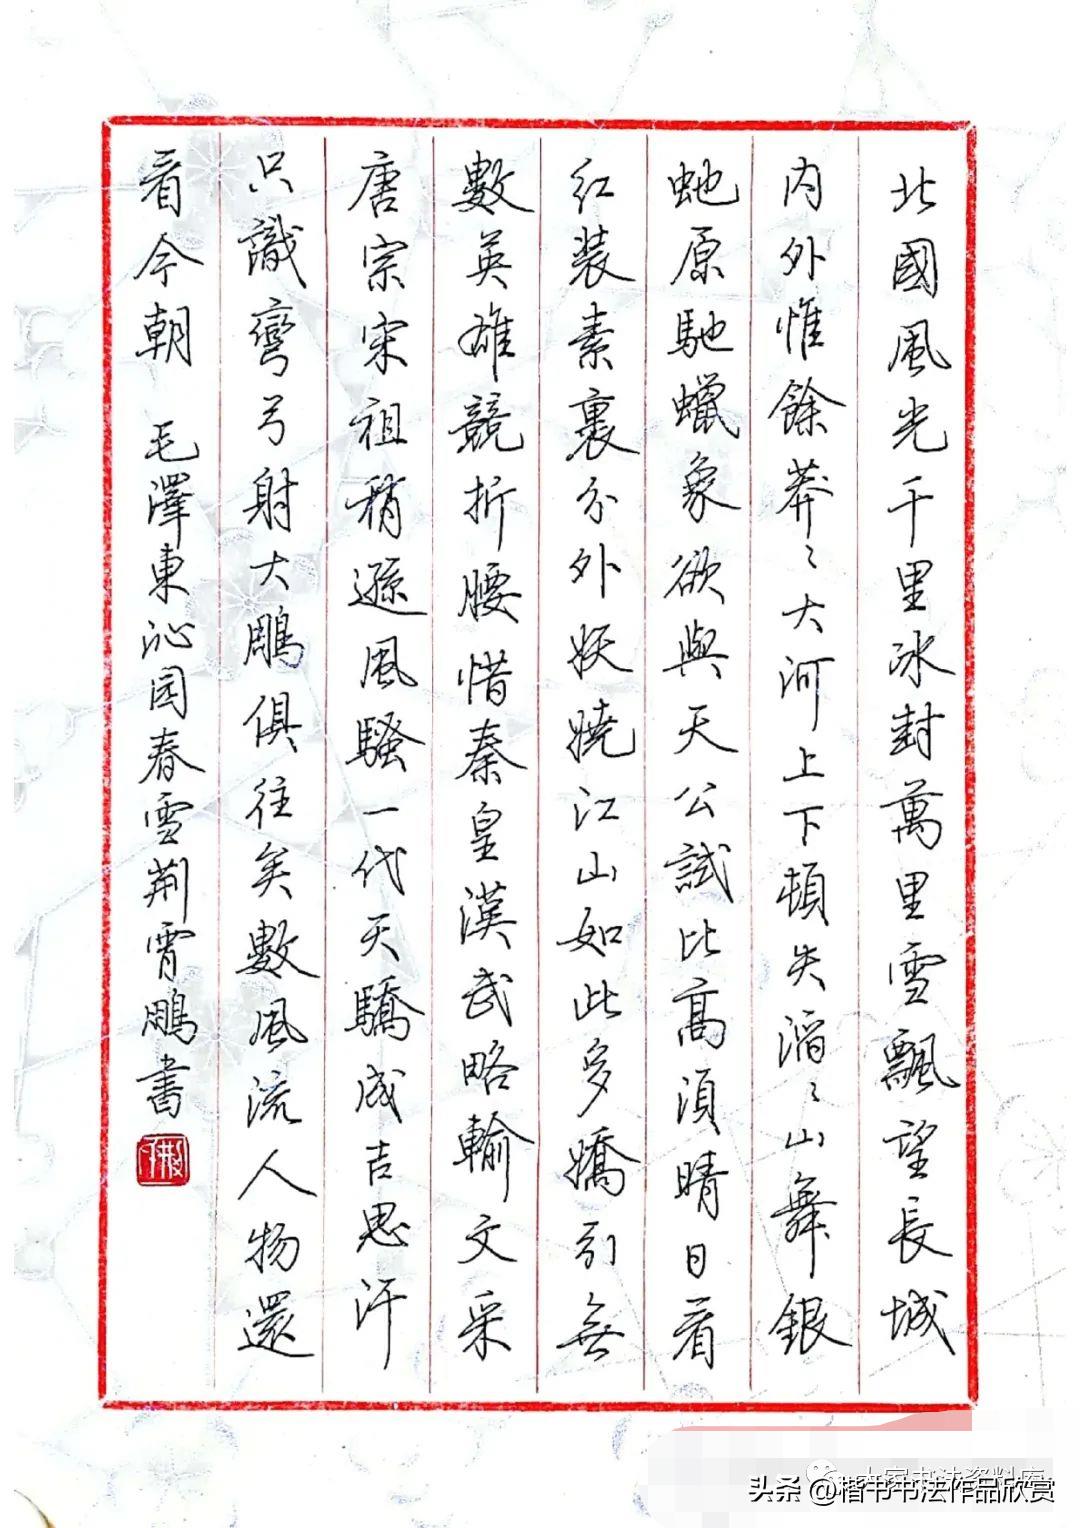 北國風光千里冰封萬里雪飄望長城
内外惟餘莽〻大河上下頓失滔〻山舞銀
虵原馳蠟象欲與天公試比高須晴日看
红装素裹分外妖嬈江山如此多嬌引無
數英雄競折腰惜秦皇漢武略輸文采
唐宗宋祖稍遜風騷一代天驕成吉思汗
只識彎弓射大鵰俱往矣數風流人物還
看今朝 毛澤東沁园春雪荆霄鵬書
大家书法资料库
头条 @楷书书法作品欣赏